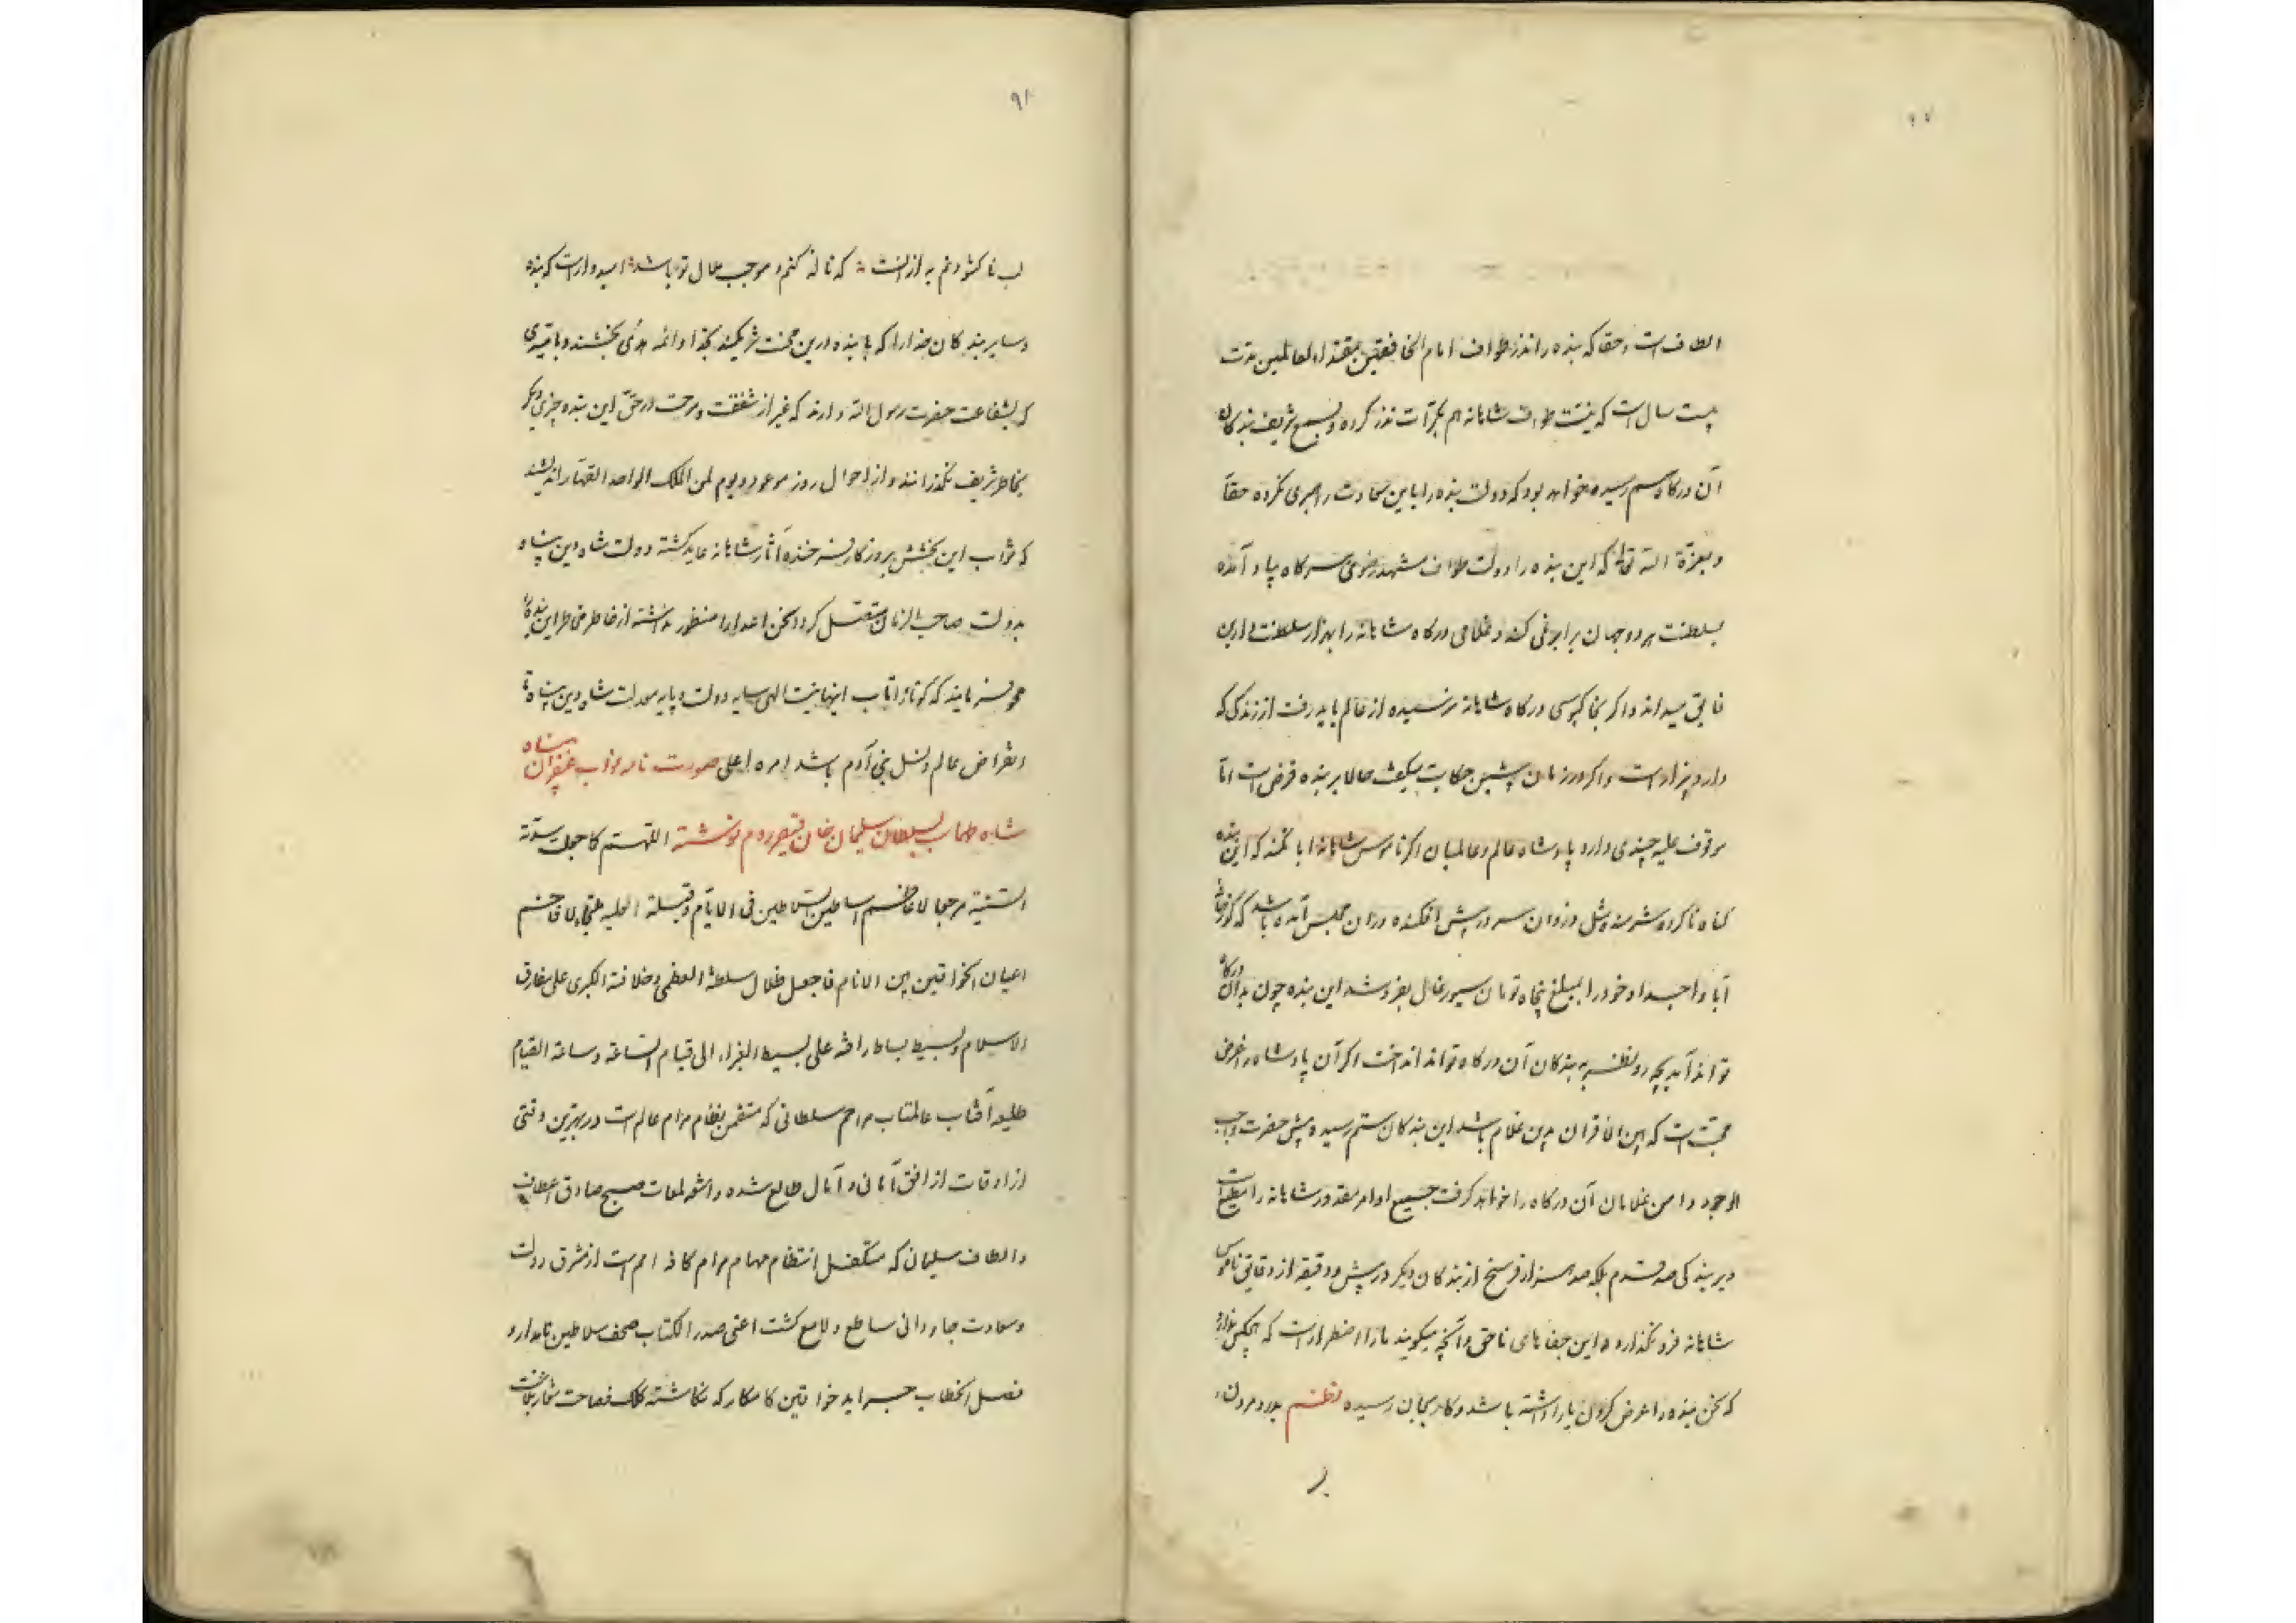 الطاف است و حقا که بنده را نذر طواف امام الخافقین مقتداء العالمین مدت
بیست سال است که بنیت طواف شاهانه هم بکرات نذر کرده و بسمع شریف بندکان
آن درکاه هم رسیده خواهد بود که دولت بنده را باین سعادت راهبری نکرده حقا
و بعزة الله تعالی که این بنده را دولت طواف مشهد رضوی هر کاه بیاد آمده
بسلطنت هر دو جهان برابر نمی کند و غلامی درکاه شاهانه را بهزار سلطنت دارین
فایق میداند و اکر بخاکبوسی درکاه شاهانه نرسیده از عالم باید رفت از زندکی که
دارد بیزار است و اکر در زمان پیشین حکایت میکفت حالا بر بنده فرض است اما
موقوف علیه چندی دارد پادشاه عالم و عالمیان اکر ناموس شاهانه ابا نکند که این بنده
کناه ناکرده شرمنده مثل دزدان سر در پیش افکنده در آن مجلس آمده باشد که
آبا و اجداد خود را بمبلغ پنجاه تومان سیورغال بفروشد این بنده چون بدان درکاه
تواند آمد بچه رو نظر به بندکان آن درکاه تواند انداخت اکر آن پادشاه را غرض
محبت است که بین الاقران بدین غلام باشد این بندکان ستم رسیده پیش حضرت واجب
الوجود دامن غلامان آن درکاه را خواهد کرفت جمیع اوامر مقدور شاهانه را مطیع است
و بر بندکی صد قدم بلکه صد هزار فرسخ از بندکان دیکر در پیش و دقیقه از دقایق ناموس
شاهانه فرو نکذارد و این جفاهای ناحق و آنچه میکویند ما را اضطرار است که هیچکس ندارد
که سخن بنده را عرض کردن یارا داشته باشد و کار بجان رسیده نظم بدرد مردن و
لب ناکشودنم به از آنست که ناله کنم و موجب ملال تو باشد امیدوار است که بنده
و سایر بندکان خدا را که با بنده درین محنت شریکند بخدا و ائمه هدی بخشند و باقیدی
که بشفاعت حضرت رسول الله دارند که غیر از شفقت و مرحمت در حق این بنده چیزی دیکر
بخاطر شریف نکذرانند و از احوال روز موعود و یوم لمن الملک الواحد القهار اندیشند
که ثواب این بخشش بروزکار فرخنده آثار شاهانه عاید کشته دولت شاه دین پناه
بدولت صاحب الزمان متصل کردد سخن اعدا را منظور نداشته از خاطر خاطر این بنده را
محو فرمایند که کوتاه آنتاب الهی سایه دولت و پایه معدلت شاه دین پناه تا
انقراض عالم و نسل بنی آدم باشد امره اعلی صورت نامه نواب غفران پناه
شاه طهماسب بسلطان سلیمان خان قیصر روم نوشته اللهم کما جعلت سدته
السنیة مرجعا لاعاظم اساطین السلاطین فی الایام و قبلته العلیه ملتجاء لافاخم
اعیان الخواقین بین الانام فاجعل ظلال سلطنة العظمی و خلافته الکبری علی مفارق
الاسلام و بسیط بساط رافته علی بسیط الغبراء الی قیام الساعة و ساعة القیام
طلیعه آفتاب عالمتاب مراحم سلطانی که متضمن نظام مرام عالم است در بهترین وقتی
از اوقات از افق آمانی و آمال طالع شده و اشعه لمعات صبح صادق اعطاف
و الطاف سلیمانی که متکفل انتظام مهام مرام کافه امم است از مشرق دولت
و سعادت جاودانی ساطع و لامع کشت اعنی صدر الکتاب صحف سلاطین نامدار و
فصل الخطاب جراید خواقین کامکار که نکاشته کلک فصاحت شعار بلاغت